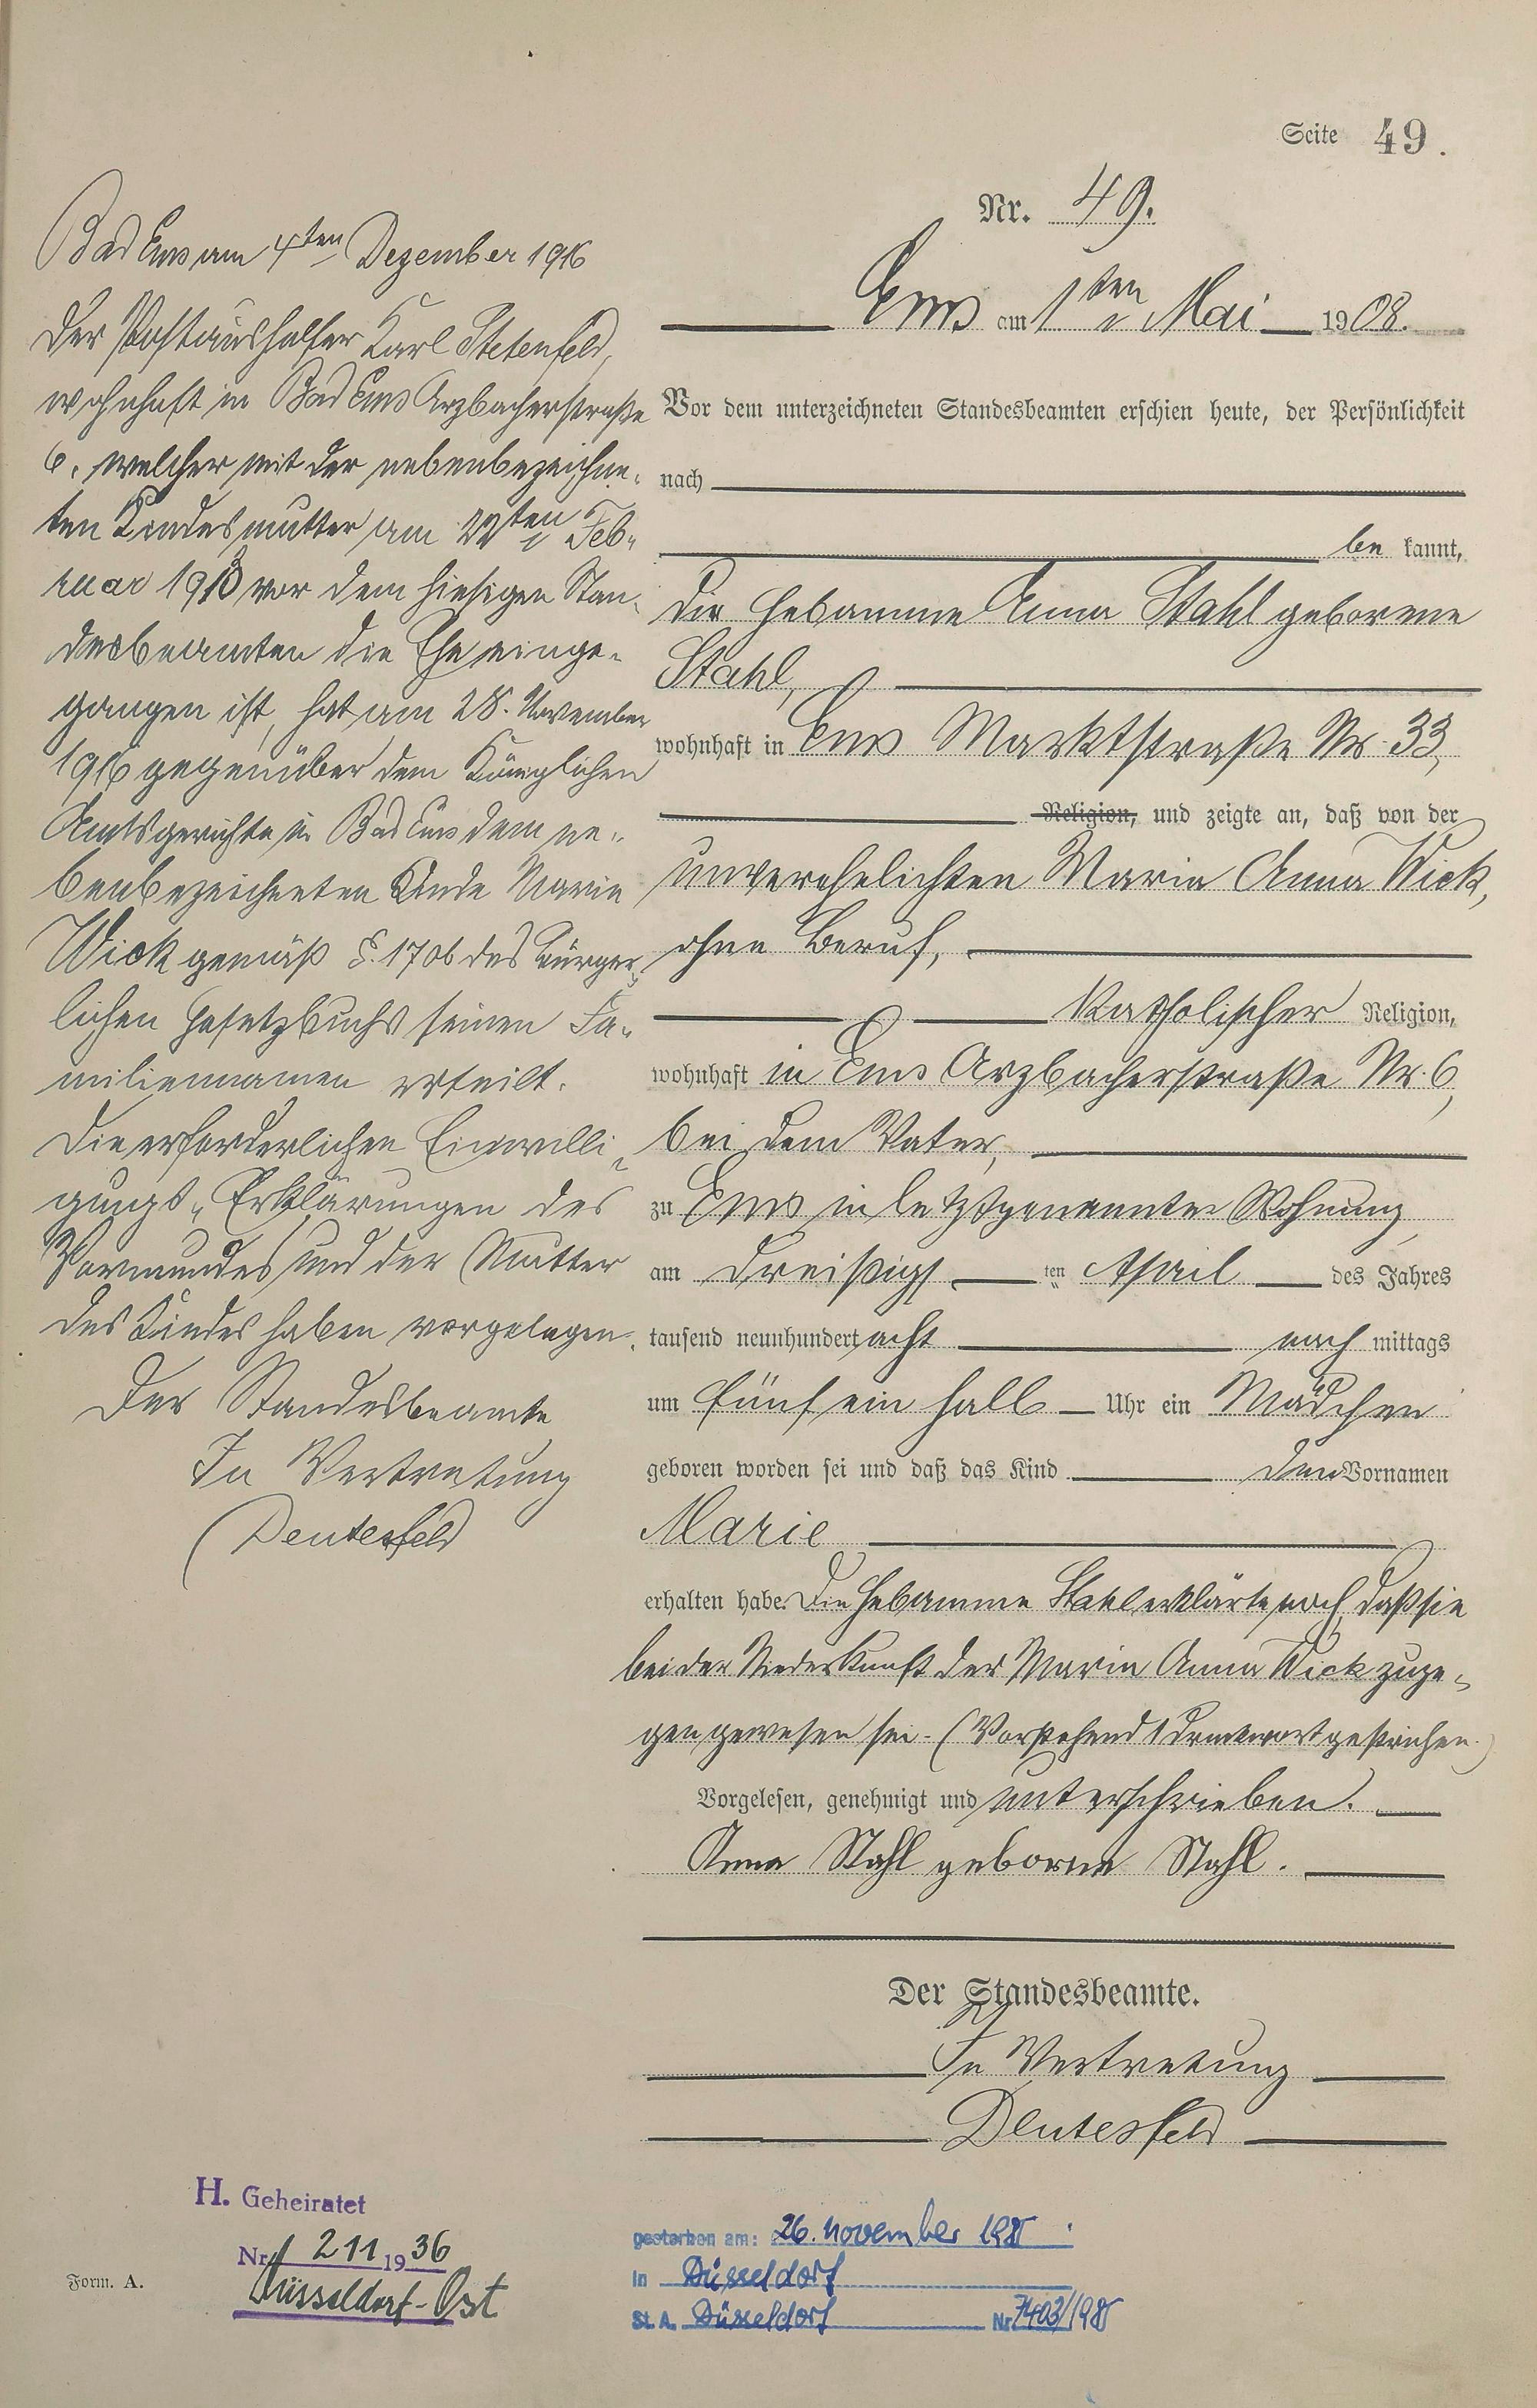 Seite 49.
Nr. 49.
Ems am 1ten Mai 1908.
Vor dem unterzeichneten Standesbeamten erschien heute, der Persönlichkeit
nach
be kannt,
die Hebamme Anna Stahl geborene
Stahl,
wohnhaft in Ems Marktstraße Nr. 33,
Religion, und zeigte an, daß von der
unverehelichten Maria Anna Wick,
ohne Beruf,
katholischer Religion,
wohnhaft in Ems Arzbacherstraße Nr. 6,
bei dem Vater,
zu Ems in letztgenannter Wohnung,
am dreißigs ten April des Jahres
tausend neunhundert acht nach mittags
um fünf ein halb Uhr ein Mädchen
geboren worden sei und daß das Kind den Vornamen
Marie
erhalten habe. Die Hebamme Stahl erklärte noch, daß sie
bei der Niederkunft der Maria Anna Wick zuge-
gen gewesen sei. (Vorstehend 1 Druckwort gestrichen.)
Vorgelesen, genehmigt und unterschrieben.
Anna Stahl geborne Stahl.
Der Standesbeamte.
In Vertretung
Deutesfeld
Bad Ems am 4ten Dezember 1916
Der Postaushelfer Karl Stetenfeld,
wohnhaft in Bad Ems Arzbacherstraße
6, welcher mit der nebenbezeichne-
ten Kindesmutter am 22ten Feb-
ruar 1913 vor dem hiesigen Stan-
desbeamten die Ehe einge-
gangen ist, hat am 28. November
1916 gegenüber dem Königlichen
Amtsgerichte in Bad Ems dem ne-
benbezeichneten Kinde Marie
Wick gemäß §. 1706 des Bürger-
lichen Gesetzbuchs seinen Fa-
miliennamen erteilt.
Die erforderlichen Einwilli-
gungs-Erklärungen des
Vormundes und der Mutter
des Kindes haben vorgelegen.
Der Standesbeamte
In Vertretung
Deutesfeld
H. Geheiratet
Nr. 211 1936
Düsseldorf-Ost
Form. A.
gestorben am: 26. November 1985
in Düsseldorf
St. A. Düsseldorf Nr. 7403/1985